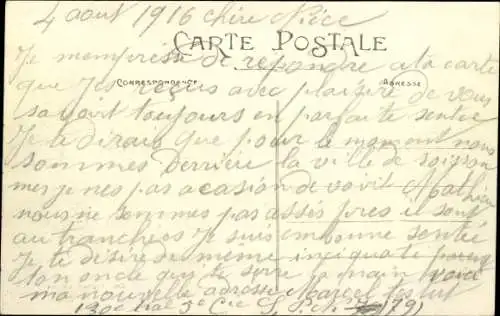 4 aout 1916 chère Nièce
CARTE POSTALE
Je mempresse de repondre a la carte
CORRESPONDENCE ADRESSE
que Jes reçus avec plaisire de vous
savoit toujours en parfaite sentée
Je te dirais que pour le moment nous
sommes derriere la ville de soisson
mes je nes pas acasion de voir Mathieu
nous ne sommes pas assés pres il sont
au tranchées Je suis en bonne sentée
Je te désire de meme
ton oncle qui te serre la main voici
ma nouvelle adresse Marcel
5e Cie S. P. 179